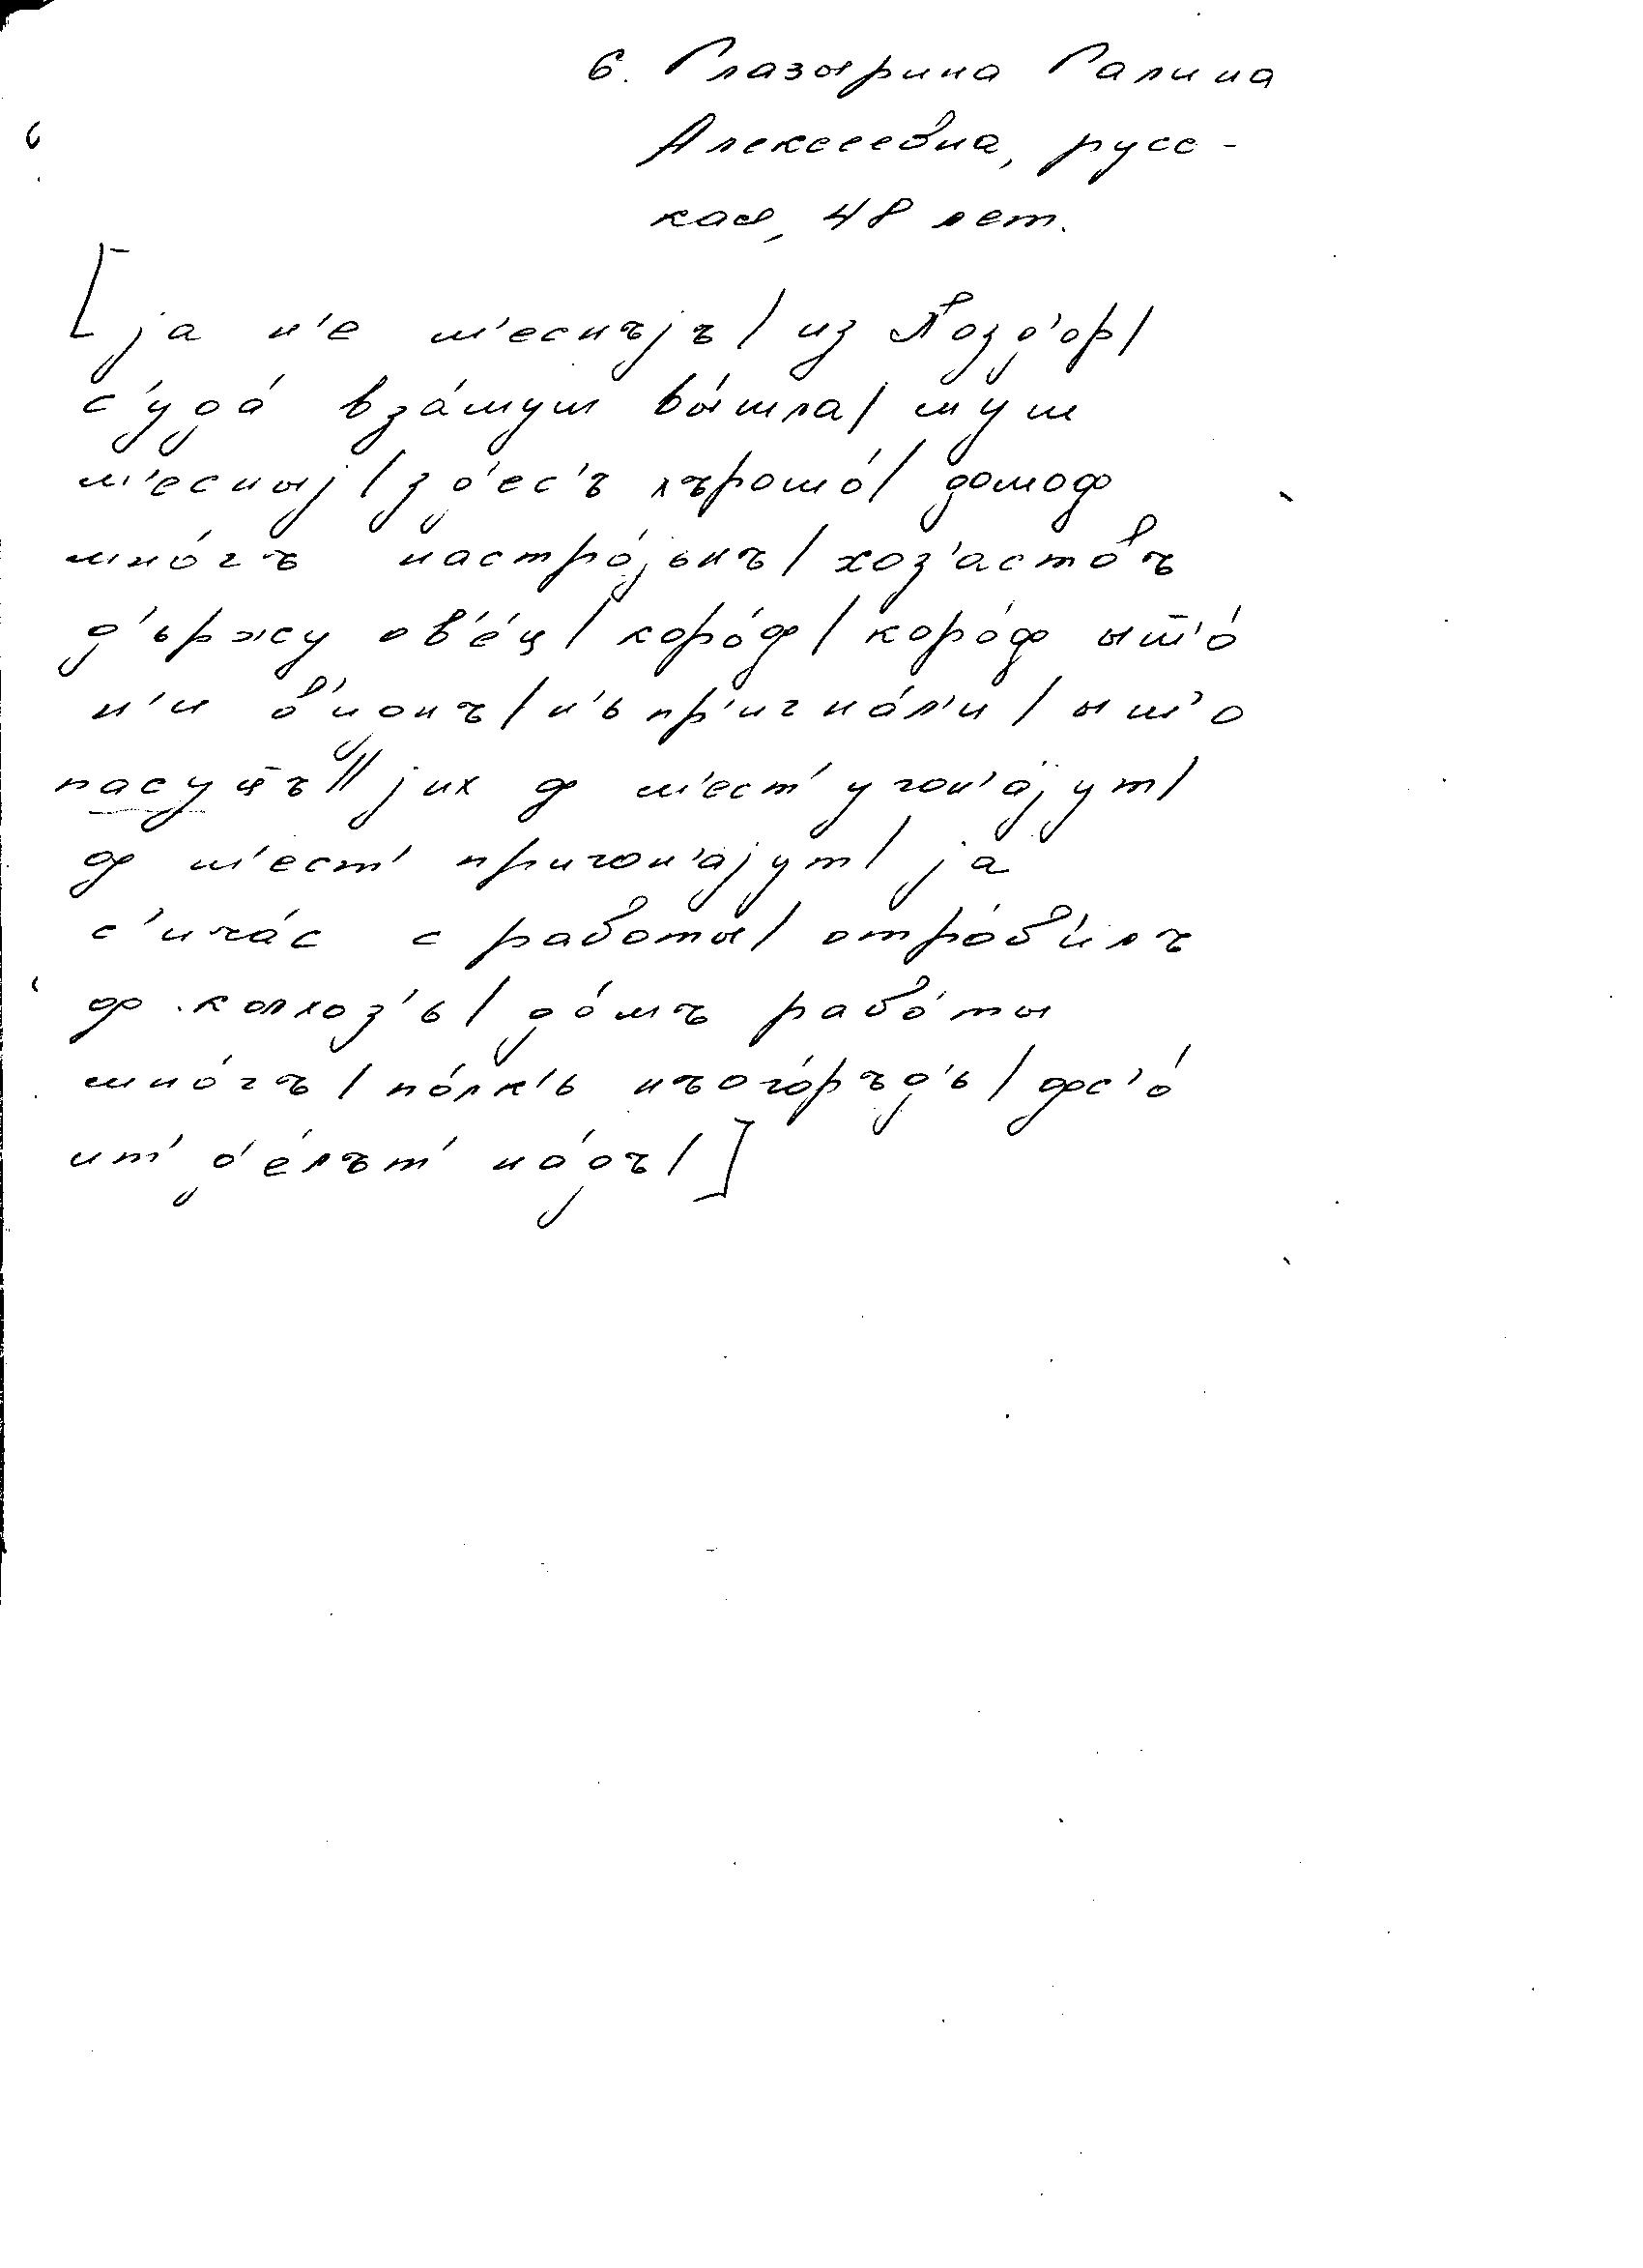 6. Глазырина Галина
Алексеевна, русс-
кая, 48 лет.
[ја н'е м'еснъјъ / из Позд'ор /
с'уда́ вза́муш вы́шла / муш
м'есныј / зд'ес'ъ хърошо́ / домоф
мно́гъ настро́јънъ / хоз'аствъ
д'ържу ов'е́ц / коро́ф / коро́ф ыш̄'о́
н'и в'иднъ / н'ь пр'игна́л'и / ыш'о
пасуц̄ъ // јих ф ш'ест' угон'а́јут /
ф ш'ест' пригон'ајут / ја
с'ича́с с работы / отро́б'илъ
ф колхоз'ь / до́мъ рабо́ты
мно́гъ / по́лк'ь нъого́ръд'ь / фс'о́
ит' д'е́лът' на́дъ / ]